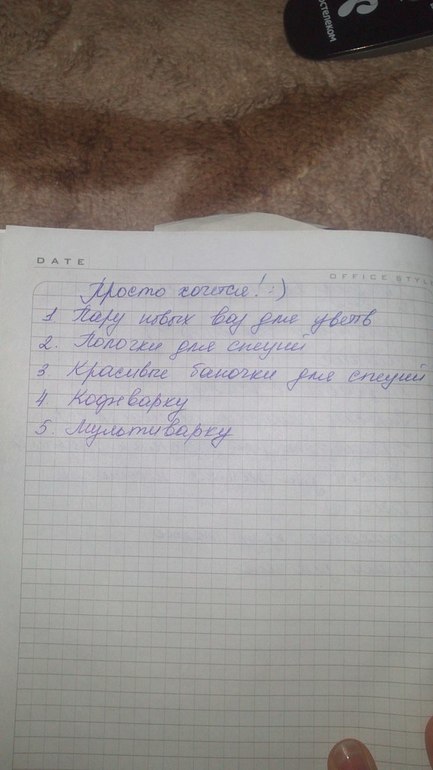 остелеком
DATE
OFFICE STYL
Просто хочется! :)
1 Пару новых ваз для цветов
2. Полочки для специй
3 Красивые баночки для специй
4 Кофеварку
5. Мультиварку